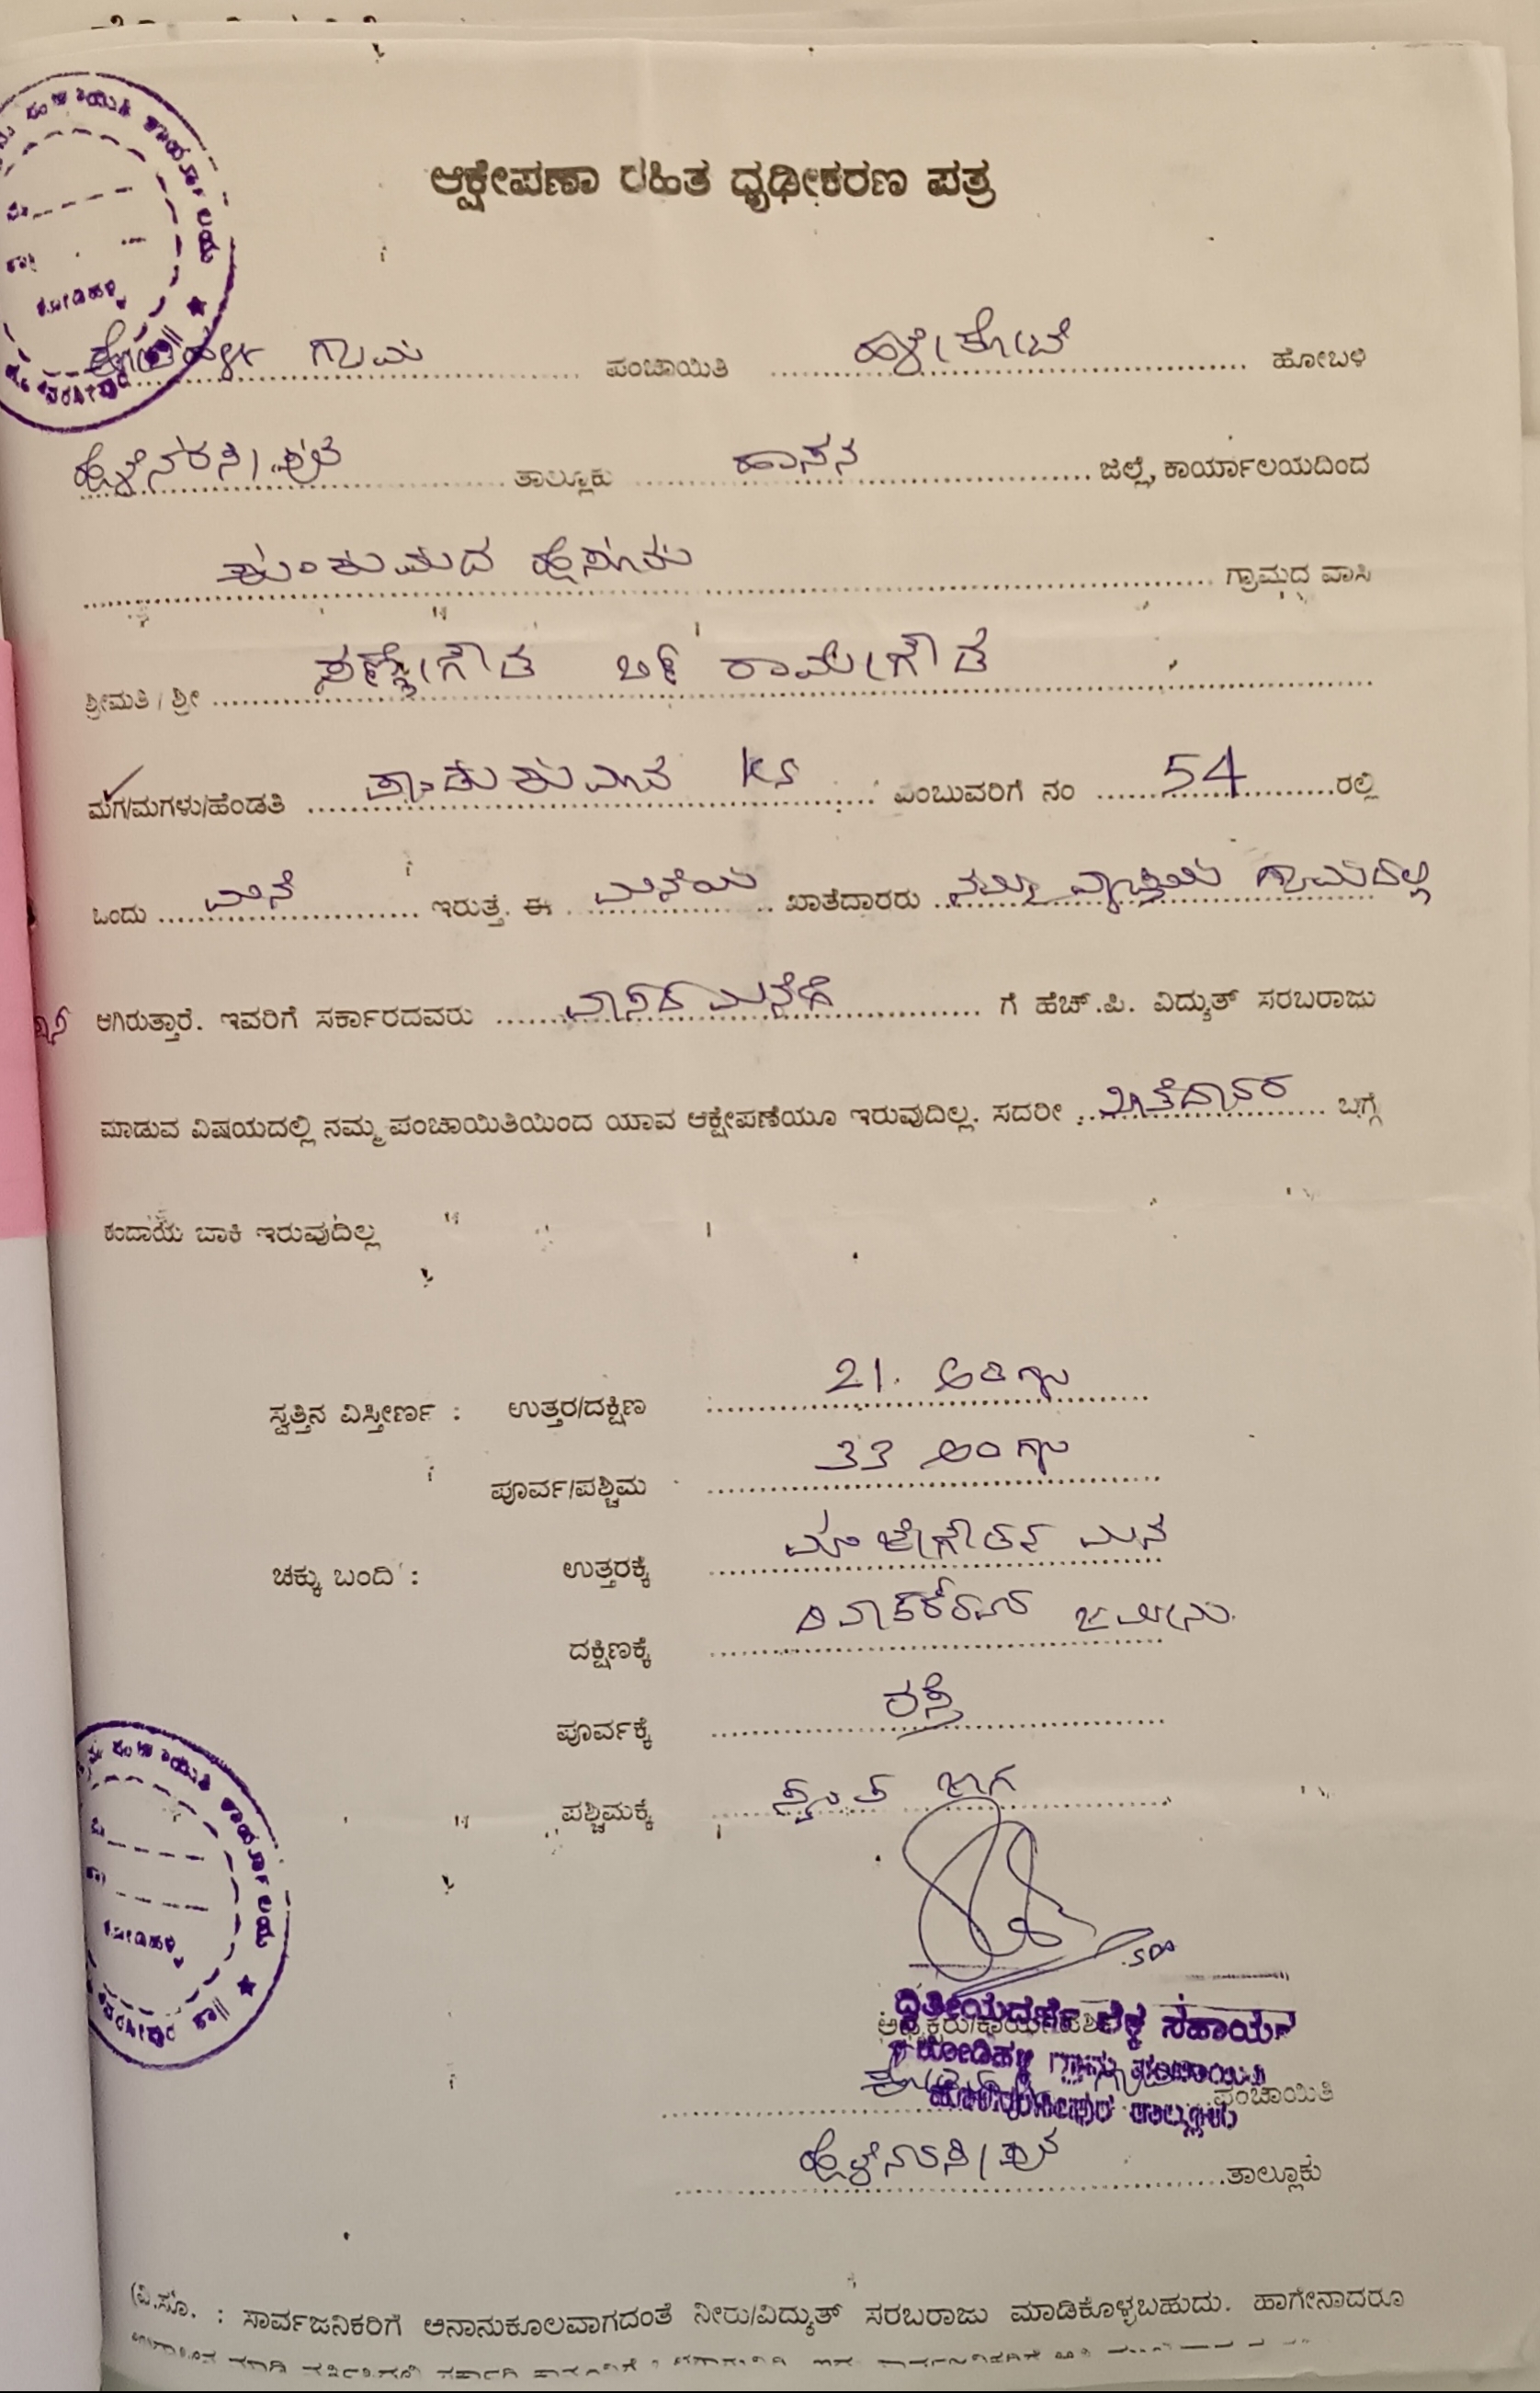 ಆಕ್ಷೇಪಣಾ ರಹಿತ ಧೃಢೀಕರಣ ಪತ್ರ
ಗ್ರಾಮ ಪಂಚಾಯಿತಿ ಹಳೇಕೋಟೆ ಹೋಬಳಿ
ಹೊಳೆನರಸೀಪುರ ತಾಲ್ಲೂಕು ಹಾಸನ ಜಿಲ್ಲೆ, ಕಾರ್ಯಾಲಯದಿಂದ
ಗ್ರಾಮದ ವಾಸಿ
ಶ್ರೀಮತಿ / ಶ್ರೀ ಸಣ್ಣೇಗೌಡ ರಾಮೇಗೌಡ
ಮಗ/ಮಗಳು/ಹೆಂಡತಿ KS ಎಂಬುವರಿಗೆ ನಂ 54 ರಲ್ಲಿ
ಒಂದು ಮನೆ ಇರುತ್ತೆ. ಈ ಮನೆಯ ಖಾತೆದಾರರು ನಮ್ಮ ವ್ಯಾಪ್ತಿಯ ಗ್ರಾಮದಲ್ಲಿ
ಆಗಿರುತ್ತಾರೆ. ಇವರಿಗೆ ಸರ್ಕಾರದವರು ವಾಸದ ಮನೆಗೆ ಗೆ ಹೆಚ್.ಪಿ. ವಿದ್ಯುತ್ ಸರಬರಾಜು
ಮಾಡುವ ವಿಷಯದಲ್ಲಿ ನಮ್ಮ ಪಂಚಾಯಿತಿಯಿಂದ ಯಾವ ಆಕ್ಷೇಪಣೆಯೂ ಇರುವುದಿಲ್ಲ. ಸದರೀ ಬಗ್ಗೆ
ಕಂದಾಯ ಬಾಕಿ ಇರುವುದಿಲ್ಲ
ಸ್ವತ್ತಿನ ವಿಸ್ತೀರ್ಣ : ಉತ್ತರ/ದಕ್ಷಿಣ 21. ಅಡಿಗಳು
ಪೂರ್ವ/ಪಶ್ಚಿಮ 33 ಅಡಿಗಳು
ಚಕ್ಕು ಬಂದಿ : ಉತ್ತರಕ್ಕೆ ಮನೆ
ದಕ್ಷಿಣಕ್ಕೆ ಜಮೀನು
ಪೂರ್ವಕ್ಕೆ ರಸ್ತೆ
ಪಶ್ಚಿಮಕ್ಕೆ ಜಾಗ
ದ್ವಿತೀಯದರ್ಜೆ ಲೆಕ್ಕ ಸಹಾಯಕ
ಅಧ್ಯಕ್ಷರು/ಕಾರ್ಯದರ್ಶಿ
ಗ್ರಾಮ ಪಂಚಾಯಿತಿ
ಹೊಳೆನರಸೀಪುರ ತಾಲ್ಲೂಕು
ಪಂಚಾಯಿತಿ
ಹೊಳೆನರಸೀಪುರ ತಾಲ್ಲೂಕು
(ವಿ.ಸೂ. : ಸಾರ್ವಜನಿಕರಿಗೆ ಅನಾನುಕೂಲವಾಗದಂತೆ ನೀರು/ವಿದ್ಯುತ್ ಸರಬರಾಜು ಮಾಡಿಕೊಳ್ಳಬಹುದು. ಹಾಗೇನಾದರೂ